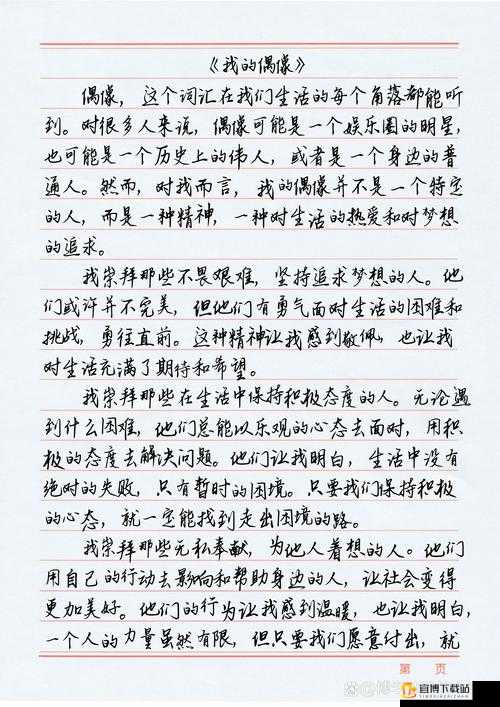 《我的偶像》
偶像，这个词汇在我们生活的每个角落都能听
到。对很多人来说，偶像可能是一个娱乐圈的明星，
也可能是一个历史上的伟人，或者是一个身边的普
通人。然而，对我而言，我的偶像并不是一个特定
的人，而是一种精神，一种对生活的热爱和对梦想
的追求。
我崇拜那些不畏艰难，坚持追求梦想的人。他
们或许并不完美，但他们有勇气面对生活的困难和
挑战，勇往直前。这种精神让我感到敬佩，也让我
对生活充满了期待和希望。
我崇拜那些在生活中保持积极态度的人。无论遇
到什么困难，他们总能以乐观的心态去面对，用积
极的态度去解决问题。他们让我明白，生活中没有
绝对的失败，只有暂时的困境。只要我们保持积极
的心态，就一定能找到走出困境的路。
我崇拜那些无私奉献，为他人着想的人。他们
用自己的行动去影响和帮助身边的人，让社会变得
更加美好。他们的行为让我感到温暖，也让我明白，
一个人的力量虽然有限，但只要我们愿意付出，就
第 页
宜博下载站